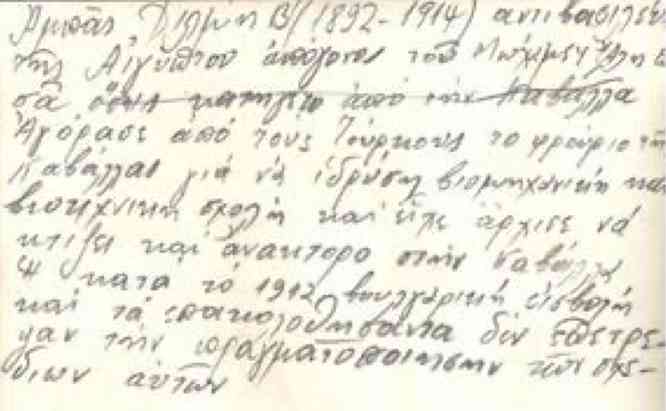 Ἀμπᾶς Χιλμῆ Β (1892-1914) ἀντιβασιλεύς
τῆς Αἰγύπτου ἀπόγονος τοῦ Μωχάμετ Ἄλη
σᾶ ὅστις κατήγετο ἀπό τήν Καβάλλα
Ἀγόρασε ἀπό τούς Τούρκους τό φρούριο τῆς
Καβάλλας γιά νά ἱδρύσῃ βιομηχανική και
βιοτεχνική σχολή καί εἶχε ἀρχίσει νά
κτίζει καί ἀνάκτορο στήν Καβάλλα
κατά τό 1912 βουλγαρική εἰσβολή
καί τά ἐπακολουθήσαντα δέν ἐπέτρε-
ψαν τήν πραγματοποίησιν τῶν σχε-
δίων αὐτῶν